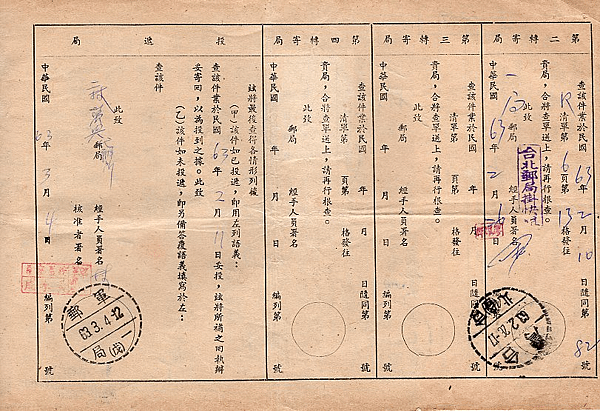 第二轉寄局
查該件業於民國 63 年 2 月 10 日隨同第 82 號
清單第 6 頁第 13 格發往
貴局，合將查單送上，請再行根查。
此致
郵局
經手人員署名
台北郵局掛快
中華民國 63 年 2 月 日
63.2.
第三轉寄局
查該件業於民國 年 月 日隨同第 號
清單第 頁第 格發往
貴局，合將查單送上，請再行根查。
此致
郵局
經手人員署名
中華民國 年 月 日 編列第 號
第四轉寄局
查該件業於民國 年 月 日隨同第 號
清單第 頁第 格發往
貴局，合將查單送上，請再行根查。
此致
郵局
經手人員署名
中華民國 年 月 日 編列第 號
投遞局
茲將最後查得各情形列後
(甲)該件如已投遞，即用左列語義：
查該件業於民國 63 年 2 月 11 日妥投，茲將所補之回執辦
妥寄回，以為投到之據。此致
(乙)該件如未投遞，即另備答覆語義填寫於左：
查該件
此致
郵局
經手人員署名
核准者署名
中華民國 63 年 3 月 4 日 編列第 號
軍郵
63.3.4.12
局(戌)